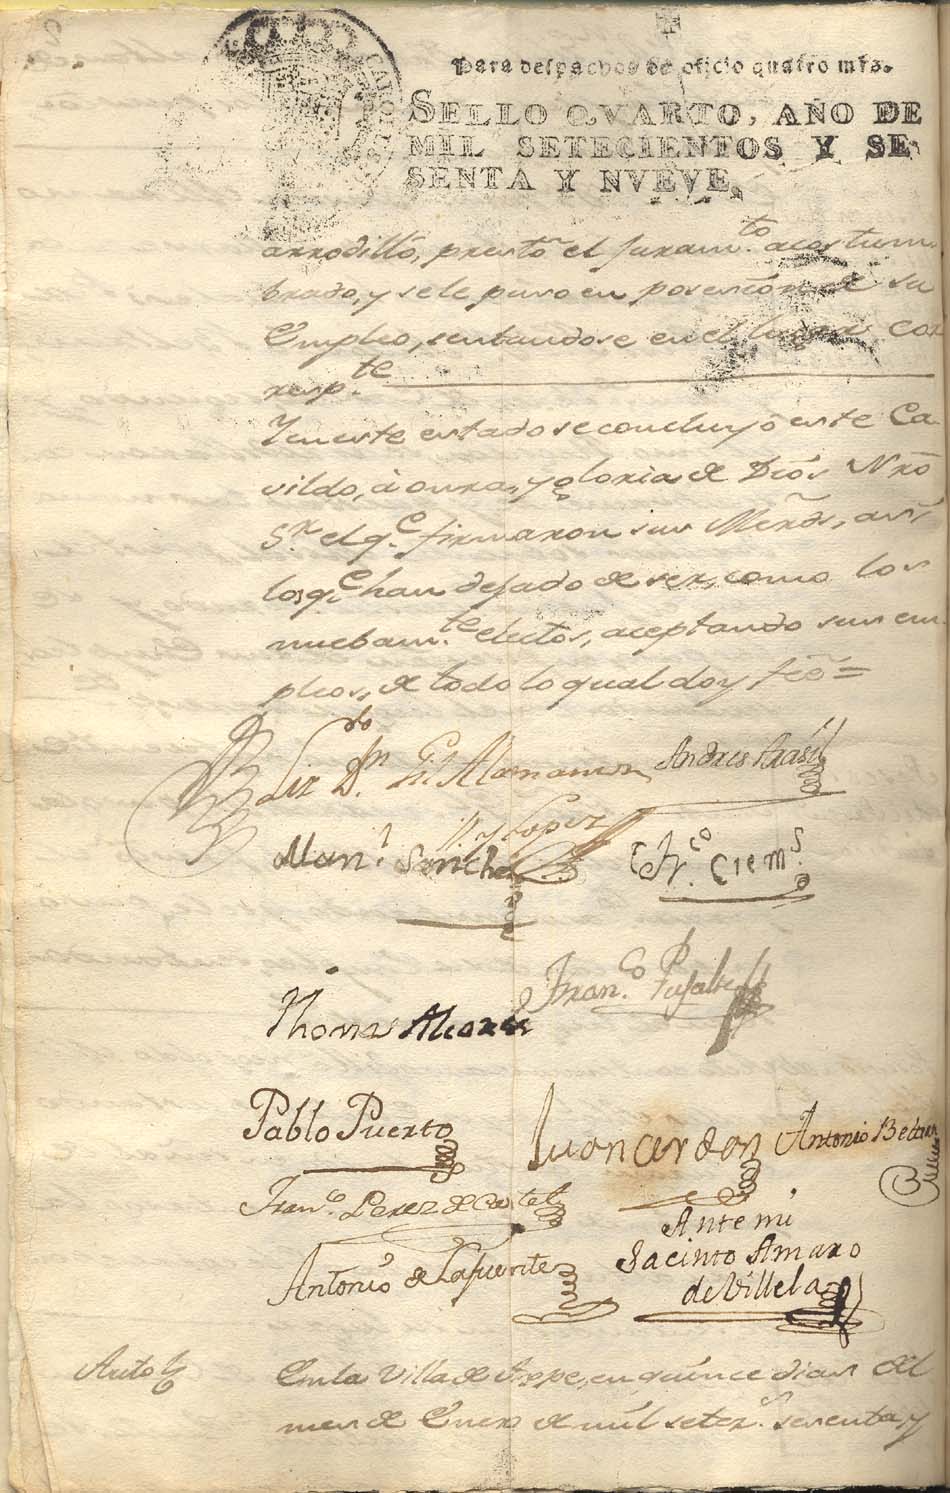 Para despachos de oficio quatro mrs.
SELLO QVARTO, AÑO DE
MIL SETECIENTOS Y SE-
SENTA Y NVEVE.
arrodilló, prestò el juram.to acostum-
brado, y sele puso en posesión de su
Empleo, sentandose en el lugar cor
resp.te
Yeneste estado se concluyó este Ca-
vildo, à onrra, y gloria de Diós Nrõ
S.r el q.e firmaron sus Merds, asi
los q.e han dejado de ser, como los
nuebam.te electos, aceptando sus em-
pleos, de todo lo qual doy feé=
Liz.do D.n Gil Alamanon
y Lopez
Andres Arasil
Man.l Sanchez
Fr.co Clem.s
Fran.co
Thomas Alcaraz
Pablo Puerto
Juan Cerdan
Antonio Beltran
Fran.co Perez de Cortel
Ante mi
Jacinto Amaro
de Villela
Antonio de Lafuente
Auto
Enla Villa de Aspe, en quince dias del
mes de Enero de mil setez.s sesenta y